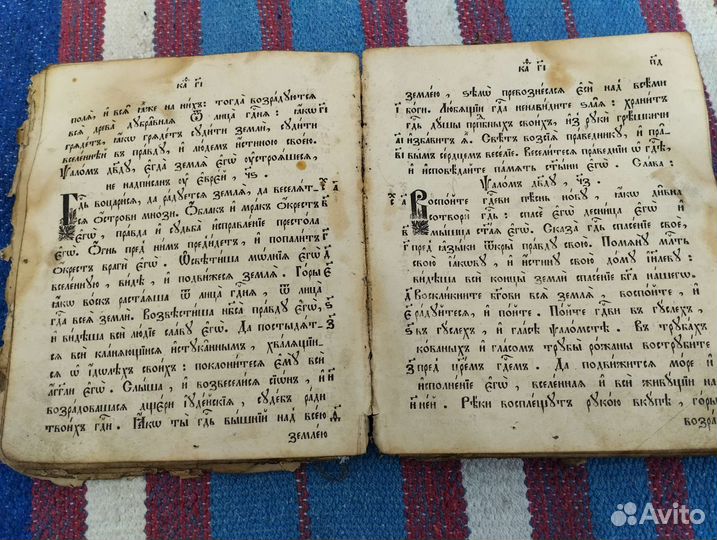 каѳ гі
полѧ̀, и҆ всѧ̑ ꙗ҆̀же на ни́хъ: тогда̀ возра́дꙋютсѧ
всѧ̑ древа̀ дꙋбра̑внаѧ ѿ лица̀ гдⷭ҇нѧ: ꙗ҆́кѡ
грѧде́тъ, ꙗ҆́кѡ грѧде́тъ сꙋди́ти землѝ, сꙋди́ти
вселе́ннѣй въ пра́вдꙋ, и҆ лю́демъ и҆́стиною свое́ю.
Ѱало́мъ дв҃дꙋ, є҆гда̀ землѧ̀ є҆гѡ̀ ᲂу҆строѧ́шесѧ,
не надпи́санъ ᲂу҆ є҆врє́й, ч҃ѕ.
Гдⷭ҇ь воцр҃и́сѧ, да ра́дꙋетсѧ землѧ̀, да веселѧ́т-
сѧ ѻ҆́строви мно́зи. Ѻ҆́блакъ и҆ мра́къ ѻ҆́крестъ
є҆гѡ̀, пра́вда и҆ сꙋдьба̀ и҆справле́нїе престо́ла
є҆гѡ̀. Ѻ҆́гнь пред̾ ни́мъ пред̾и́детъ, и҆ попали́тъ
ѻ҆́крестъ врагѝ є҆гѡ̀. Ѡ҆свѣти́ша мѡ́лнїѧ є҆гѡ̀
вселе́ннꙋю, ви́дѣ, и҆ подви́жесѧ землѧ̀. Го́ры
ꙗ҆́кѡ во́скъ раста́ѧша ѿ лица̀ гдⷭ҇нѧ, ѿ лица̀
гдⷭ҇а всеѧ̀ землѝ. Возвѣсти́ша нб҃са̀ пра́вдꙋ є҆гѡ̀,
и҆ ви́дѣша всѝ лю́дїе сла́вꙋ є҆гѡ̀. Да постыдѧ́т-
сѧ всѝ кла́нѧющїисѧ и҆стꙋка̑ннымъ, хва́лѧщїи-
сѧ ѡ҆ і҆́дѡлѣхъ свои́хъ: поклони́тесѧ є҆мꙋ̀ всѝ
а҆́гг҃ли є҆гѡ̀. Слы́ша, и҆ возвесели́сѧ сїѡ́нъ, и҆
возра́довашасѧ дще́ри і҆ꙋдє́йскїѧ, сꙋде́бъ ра́ди
твои́хъ гдⷭ҇и. Ꙗ҆́кѡ ты̀ гдⷭ҇ь вы́шнїй над̾ все́ю
земле́ю
каѳ гі
п҃д
земле́ю, ѕѣлѡ̀ превозне́слсѧ є҆сѝ над̾ всѣ́ми
бо́ги. Лю́бѧщїи гдⷭ҇а ненави́дите ѕла́ѧ: храни́тъ
гдⷭ҇ь дꙋ́шы прпⷣбныхъ свои́хъ, и҆з̾ рꙋкѝ грѣ́шничи
и҆зба́витъ ѧ҆̀. Свѣ́тъ возсїѧ̀ пра́ведникꙋ, и҆ пра́-
вымъ се́рдцемъ весе́лїе. Весели́тесѧ пра́веднїи ѡ҆ гдⷭ҇ѣ,
и҆ и҆сповѣ́дайте па́мѧть ст҃ы́ни є҆гѡ̀. Сла́ва:
Ѱало́мъ дв҃дꙋ, ч҃з.
Воспо́йте гдⷭ҇еви пѣ́снь но́вꙋ, ꙗ҆́кѡ ди̑вна
сотворѝ гдⷭ҇ь: спасѐ є҆го̀ десни́ца є҆гѡ̀ и҆
мы́шца ст҃а́ѧ є҆гѡ̀. Сказа̀ гдⷭ҇ь спасе́нїе своѐ,
пред̾ ꙗ҆зы́ки ѿкры̀ пра́вдꙋ свою̀. Помѧнꙋ̀ млⷭ҇ть
свою̀ і҆а́кѡвꙋ, и҆ и҆́стинꙋ свою̀ до́мꙋ і҆и҃левꙋ:
ви́дѣша всѝ концы̀ землѝ спасе́нїе бг҃а на́шегѡ.
Воскли́кните бг҃ови всѧ̀ землѧ̀, воспо́йте, и҆
ра́дꙋйтесѧ, и҆ по́йте. По́йте гдⷭ҇еви въ гꙋ́слехъ,
въ гꙋ́слехъ, и҆ гла́сѣ ѱало́мстѣ. Въ трꙋба́хъ
ко́ванныхъ и҆ гла́сомъ трꙋбы̀ ро́жаны вострꙋби́те
пред̾ цр҃е́мъ гдⷭ҇емъ. Да подви́житсѧ мо́ре и҆
и҆сполне́нїе є҆гѡ̀, вселе́ннаѧ и҆ всѝ живꙋ́щїи на
не́й. Рѣ́ки воспле́щꙋтъ рꙋко́ю вкꙋ́пѣ, го́ры
возра́
Avito